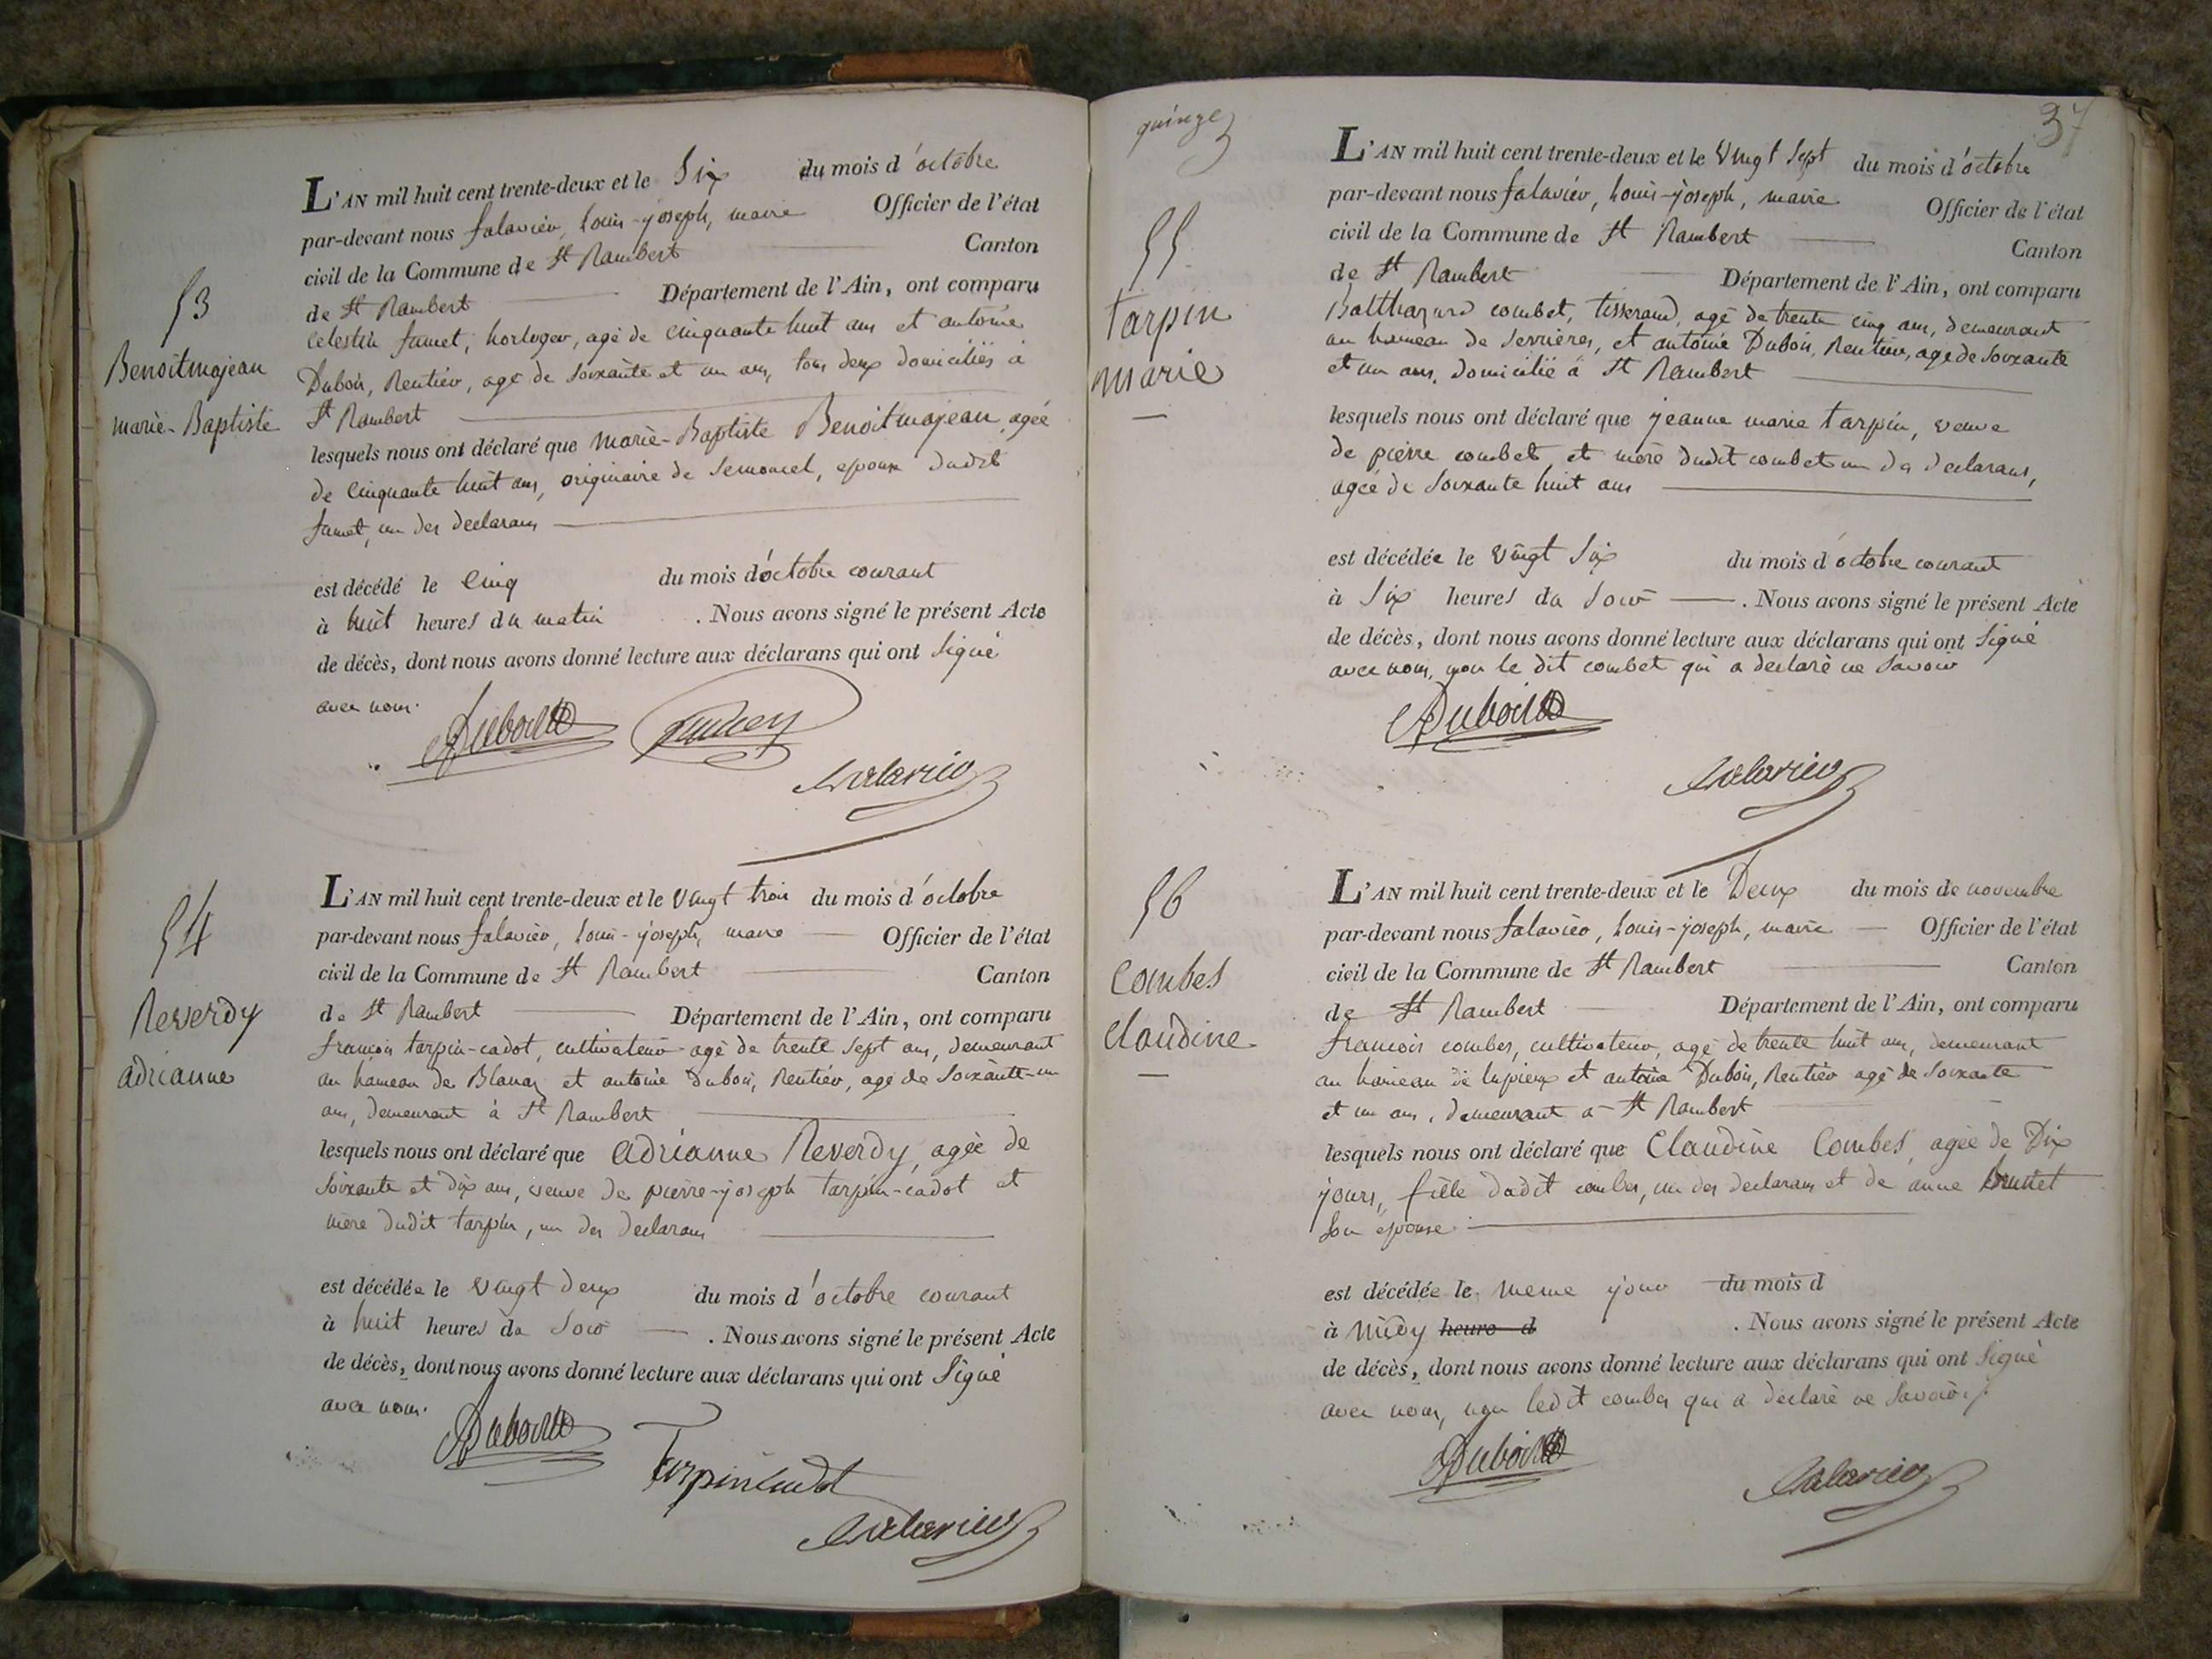 53
Benoitmojean
marie-Baptiste
L'AN mil huit cent trente-deux et le Six du mois d'octobre
par-devant nous falavier, Louis-joseph, maire Officier de l'état
civil de la Commune de St Rambert Canton
de St Rambert Département de l'Ain, ont comparu
Celestin famet, horloger, agé de cinquante huit ans et antoine
Dubois, Rentier, agé de soixante et un ans, tous deux domiciliés à
St Rambert
lesquels nous ont déclaré que marie-Baptiste Benoitmojean, agée
de cinquante huit ans, originaire de Semoncel, epouse dudit
famet, un des declarans
est décédé le cinq du mois d'octobre courant
à huit heures du matin . Nous avons signé le présent Acte
de décès, dont nous avons donné lecture aux déclarans qui ont signé
avec nous.
Dubois
falavier
54
Reverdy
adrianne
L'AN mil huit cent trente-deux et le vingt trois du mois d'octobre
par-devant nous falavier, Louis-joseph, maire Officier de l'état
civil de la Commune de St Rambert Canton
de St Rambert Département de l'Ain, ont comparu
françois tarpin-cadot, cultivateur agé de trente sept ans, demeurant
au hameau de Blanaz et antoine Dubois, Rentier, agé de soixante-un
ans, demeurant à St Rambert
lesquels nous ont déclaré que adrianne Reverdy, agée de
soixante et dix ans, veuve de pierre-joseph tarpin-cadot et
mère dudit tarpin, un des declarans
est décédée le vingt deux du mois d'octobre courant
à huit heures du soir . Nous avons signé le présent Acte
de décès, dont nous avons donné lecture aux déclarans qui ont signé
avec nous.
Dubois
Tarpin Cadot
falavier
quinze
37
55
tarpin
marie
L'AN mil huit cent trente-deux et le vingt sept du mois d'octobre
par-devant nous falavier, Louis-joseph, maire Officier de l'état
civil de la Commune de St Rambert Canton
de St Rambert Département de l'Ain, ont comparu
Balthazard combet, tisserand, agé de trente cinq ans, demeurant
au hameau de Serrières, et antoine Dubois, Rentier, agé de soixante
et un ans, domicilié à St Rambert
lesquels nous ont déclaré que jeanne marie tarpin, veuve
de pierre combet et mère dudit combet un des declarans,
agée de soixante huit ans
est décédée le vingt six du mois d'octobre courant
à six heures du soir . Nous avons signé le présent Acte
de décès, dont nous avons donné lecture aux déclarans qui ont signé
avec nous, non le dit combet qui a declaré ne savoir
Dubois
falavier
56
Combes
claudine
L'AN mil huit cent trente-deux et le Deux du mois de novembre
par-devant nous falavier, Louis-joseph, maire Officier de l'état
civil de la Commune de St Rambert Canton
de St Rambert Département de l'Ain, ont comparu
francois combes, cultivateur, agé de trente huit ans, demeurant
au hameau de lupieux et antoine Dubois, Rentier agé de soixante
et un ans, demeurant à St Rambert
lesquels nous ont déclaré que Claudine Combes, agée de Dix
jours, fille dudit combes, un des declarans et de anne brunet
son épouse
est décédée le meme jour du mois d
à midy heure d . Nous avons signé le présent Acte
de décès, dont nous avons donné lecture aux déclarans qui ont signé
avec nous, non ledit combes qui a declaré ne savoir
Dubois
falavier